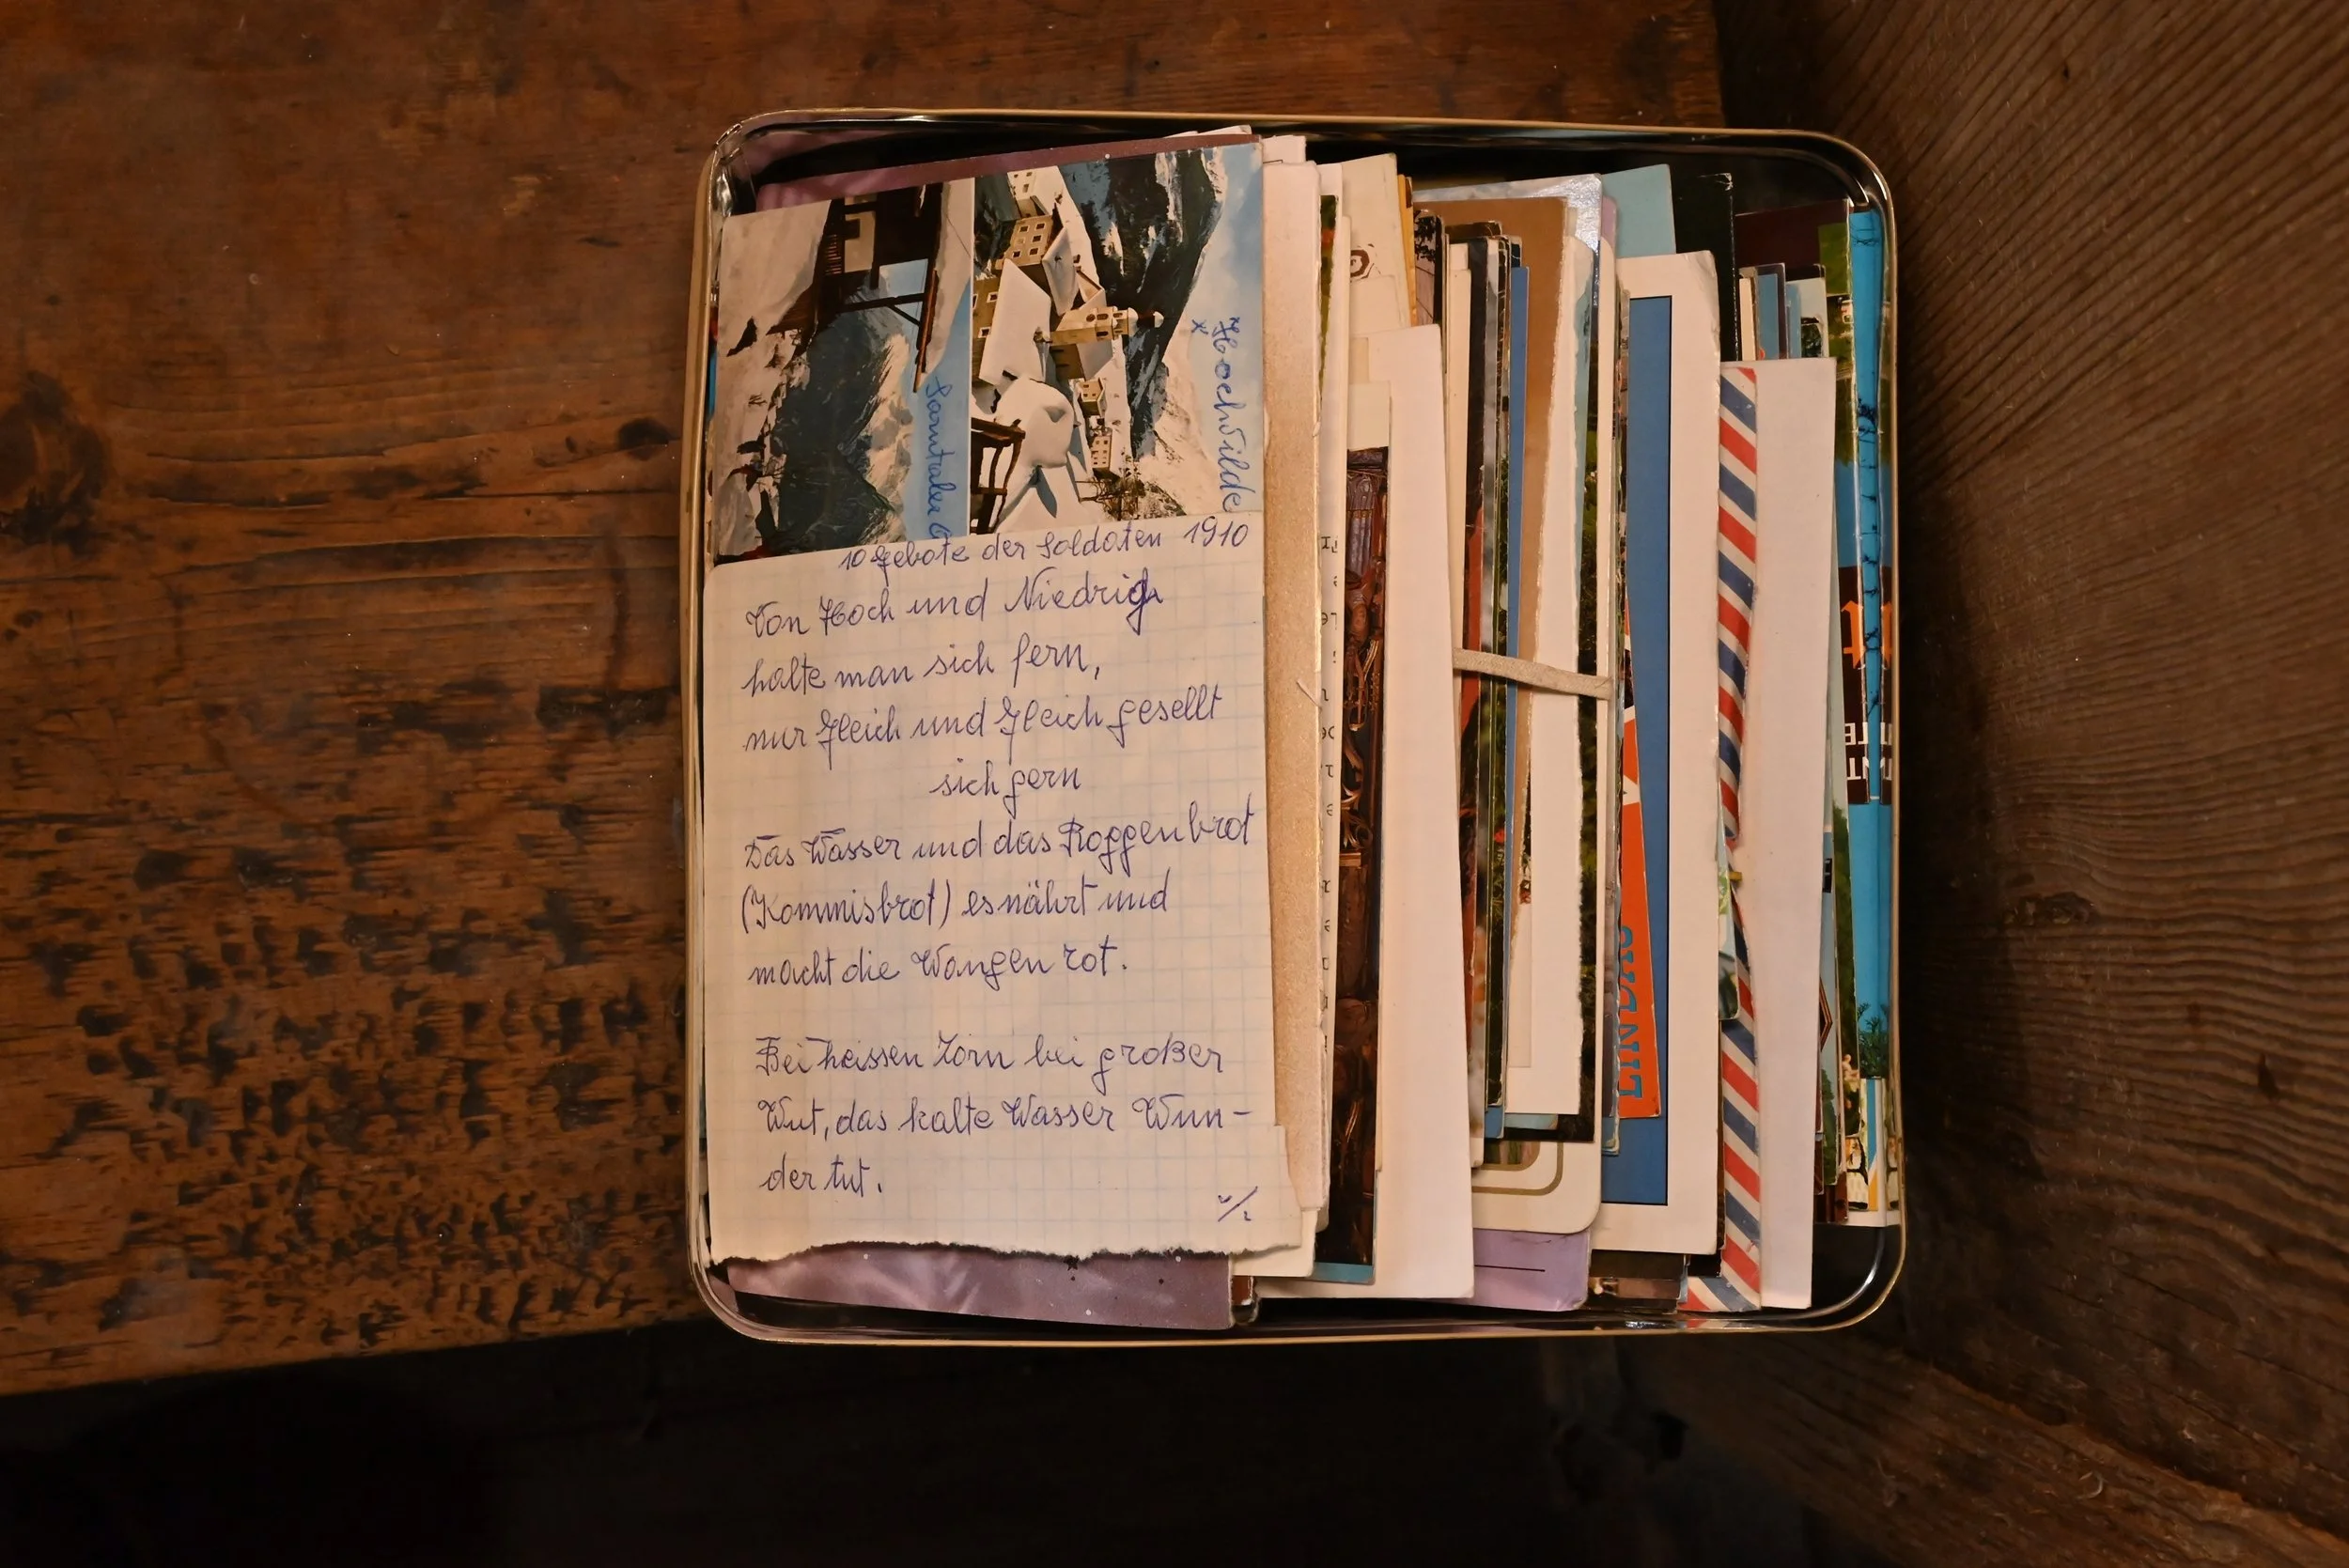 Hochwilde
Sarntaler
10 Gebote der Soldaten 1910
Von Hoch und Niedrig
halte man sich fern,
nur Gleich und Gleich gesellt
sich gern
Das Wasser und das Roggenbrot
(Kommisbrot) es nährt und
macht die Wangen rot.
Bei heissen Zorn bei großer
Wut, das kalte Wasser Wun-
der tut.
LINDAU